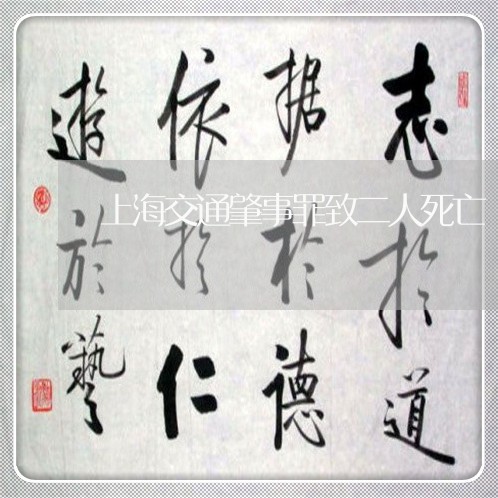 志於道
据於德
依於仁
遊於藝
上海交通肇事罪致二人死亡